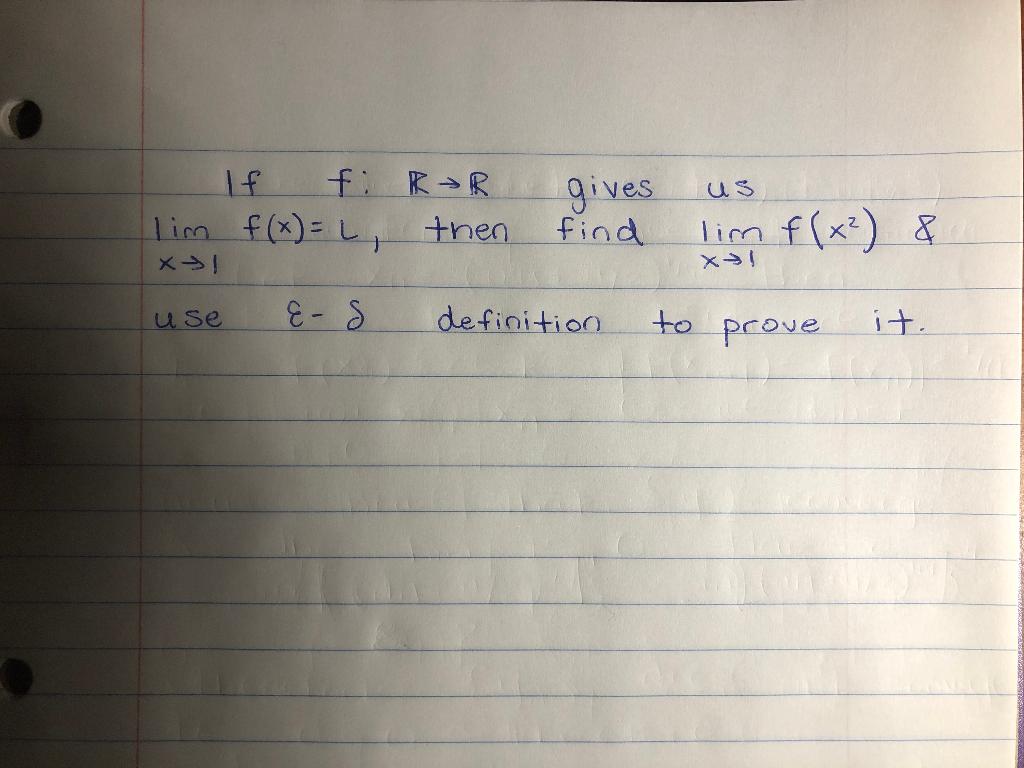 If f: ℝ→ℝ gives us
lim f(x)=L, then find lim f(x²) &
x→1 x→1
use ε-δ definition to prove it.